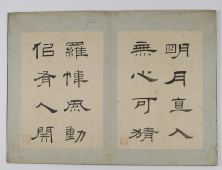 明月直入
無心可猜
羅幃凮動
佀有人開